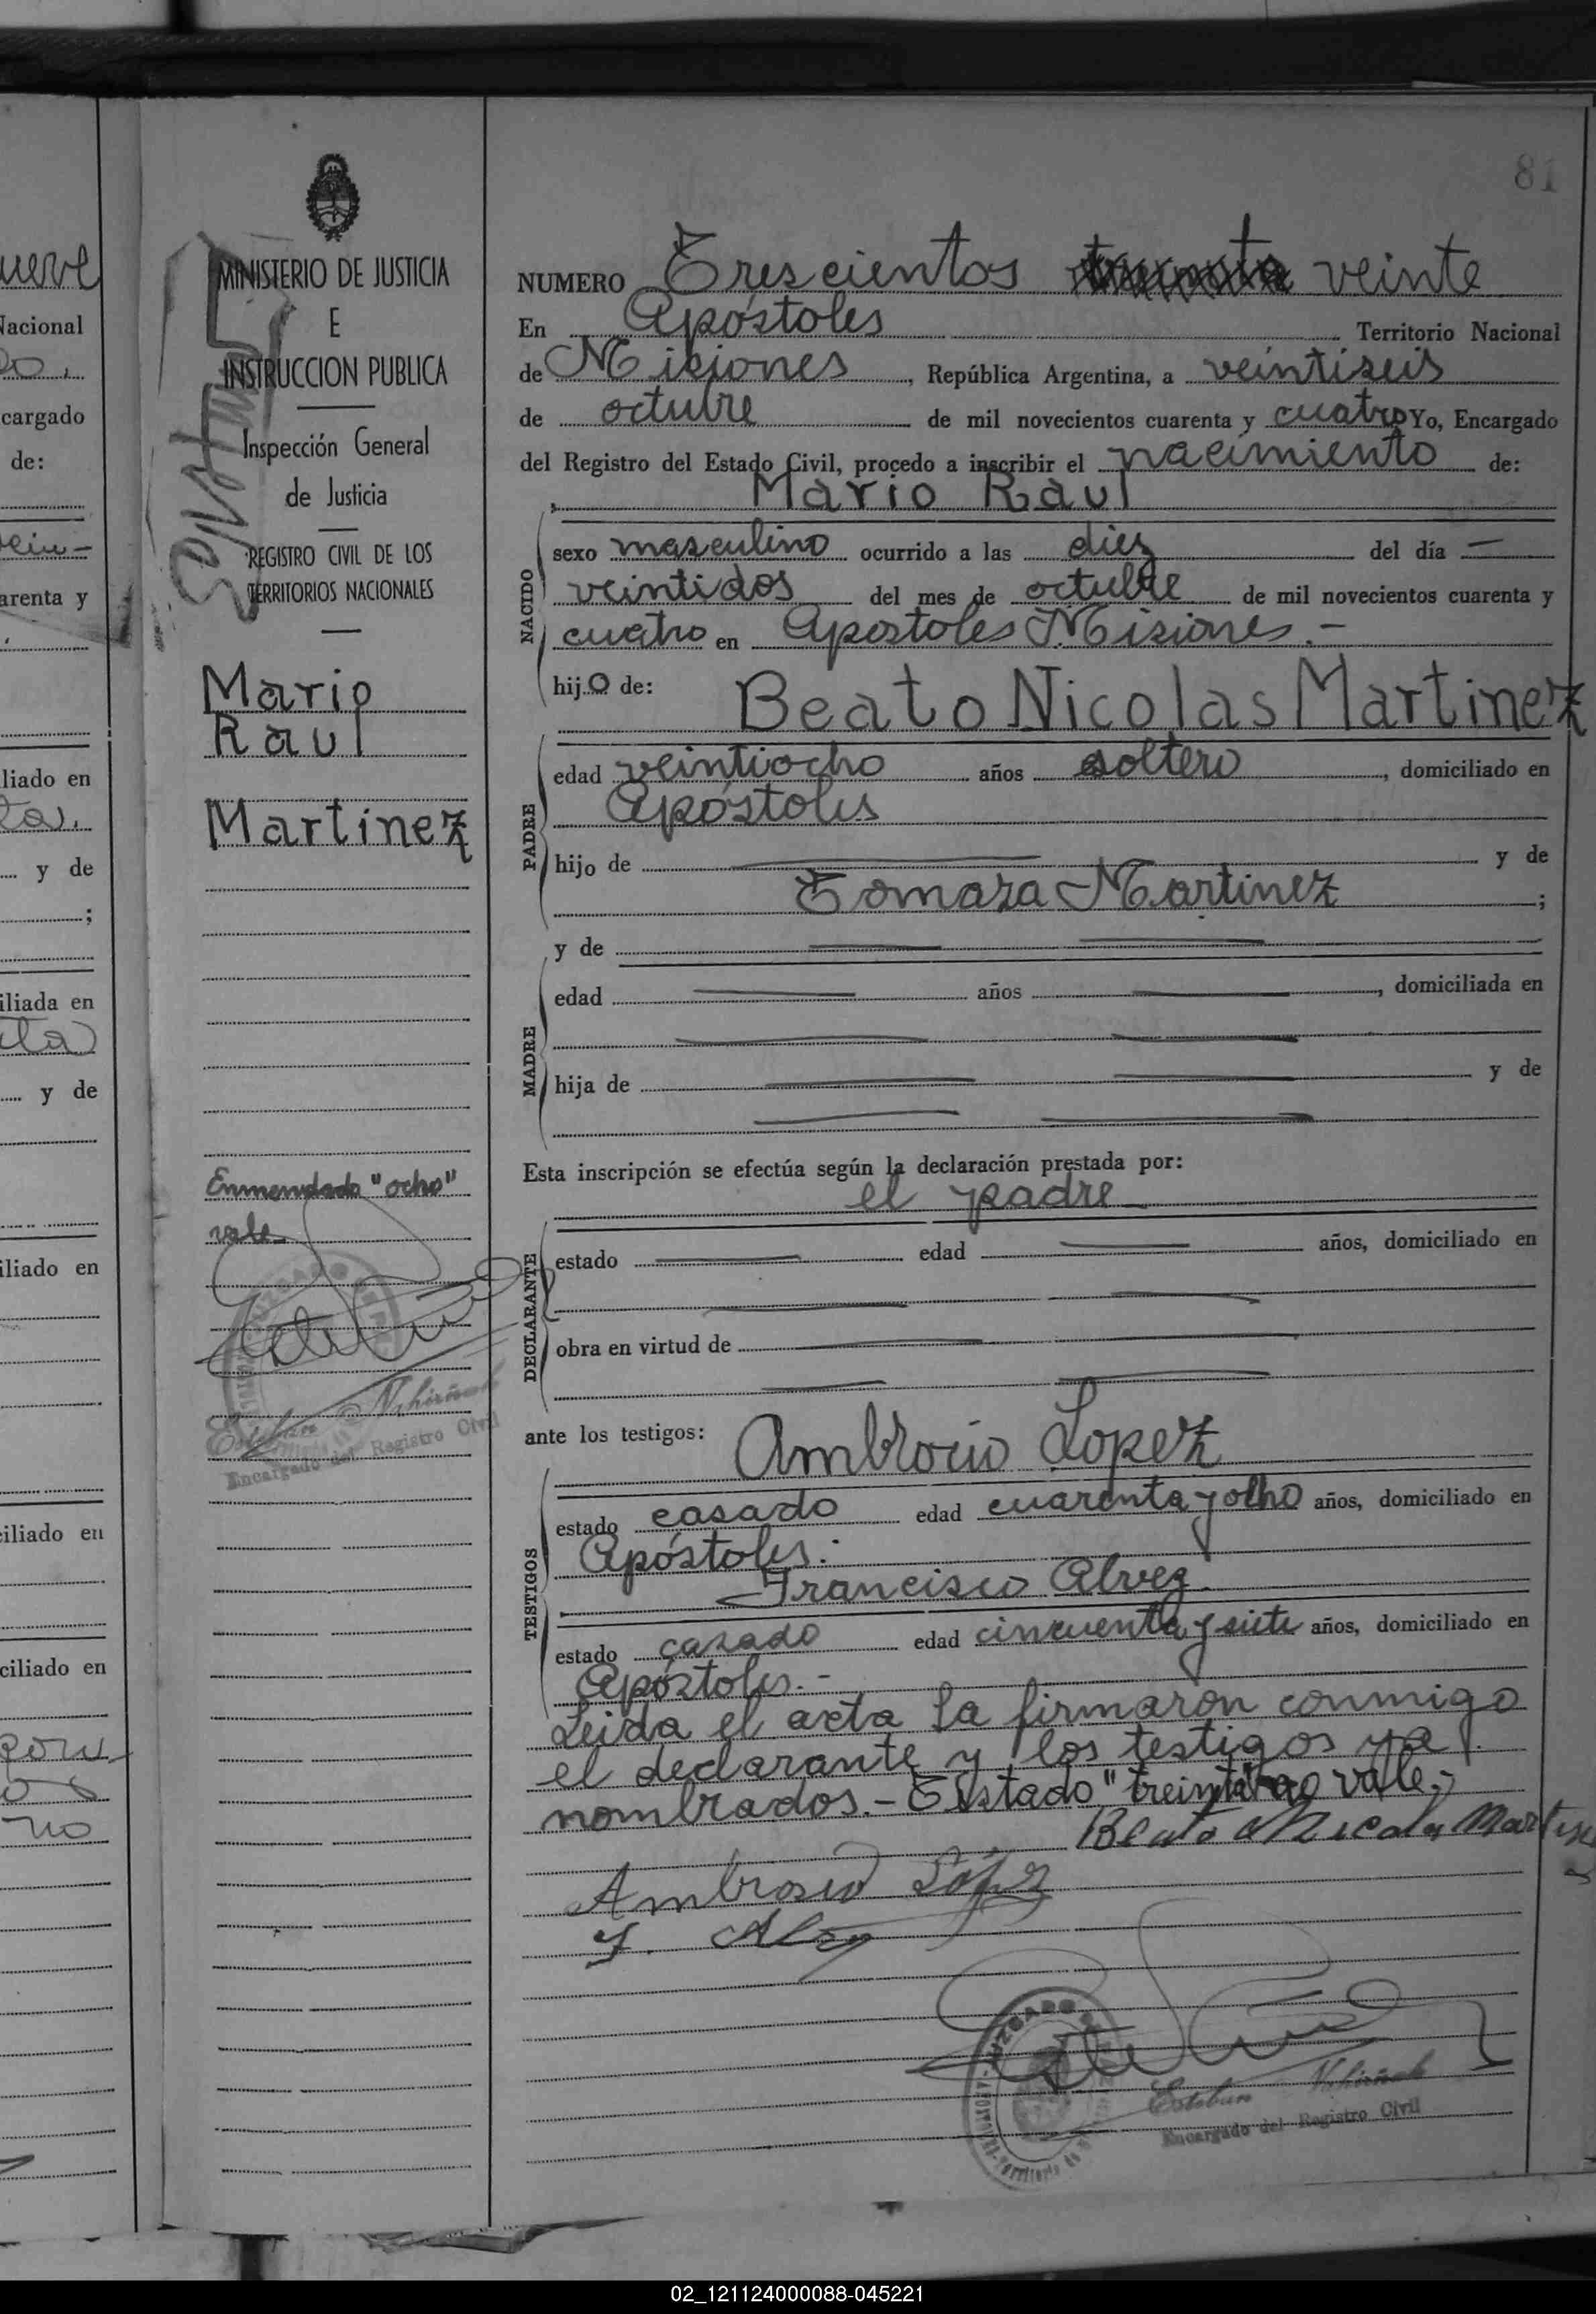 81
MINISTERIO DE JUSTICIA
E
INSTRUCCION PUBLICA
Inspección General
de Justicia
REGISTRO CIVIL DE LOS
TERRITORIOS NACIONALES
Mario
Raul
Martinez
Enmendado "ocho"
vale
Encargado del Registro Civil
NUMERO Trescientos treinta veinte
En Apóstoles Territorio Nacional
de Misiones, República Argentina, a veintiseis
de octubre de mil novecientos cuarenta y cuatro Yo, Encargado
del Registro del Estado Civil, procedo a inscribir el nacimiento de:
Mario Raul
NACIDO
sexo masculino ocurrido a las diez del día —
veintidos del mes de octubre de mil novecientos cuarenta y
cuatro en Apostoles Misiones.-
hijo de: Beato Nicolas Martinez
PADRE
edad veintiocho años soltero, domiciliado en
Apóstoles
hijo de y de
Tomaza Martinez ;
y de
MADRE
edad años , domiciliada en
hija de y de
Esta inscripción se efectúa según la declaración prestada por:
el padre
DECLARANTE
estado edad años, domiciliado en
obra en virtud de
ante los testigos: Ambrocio Lopez
TESTIGOS
estado casado edad cuarenta y ocho años, domiciliado en
Apóstoles.-
Francisco Alvez
estado cazado edad cincuenta y siete años, domiciliado en
Apóstoles.-
Leida el acta la firmaron conmigo
el declarante y los testigos ya
nombrados.- Testado "treinta" no vale.-
Beato Nicolas Martinez
Ambrosio López
F. Alvez
Esteban
Encargado del Registro Civil
ueve
Nacional
cargado
de:
arenta y
iliado en
y de
;
iliada en
y de
iliado en
ciliado en
ciliado en
no
02_121124000088-045221